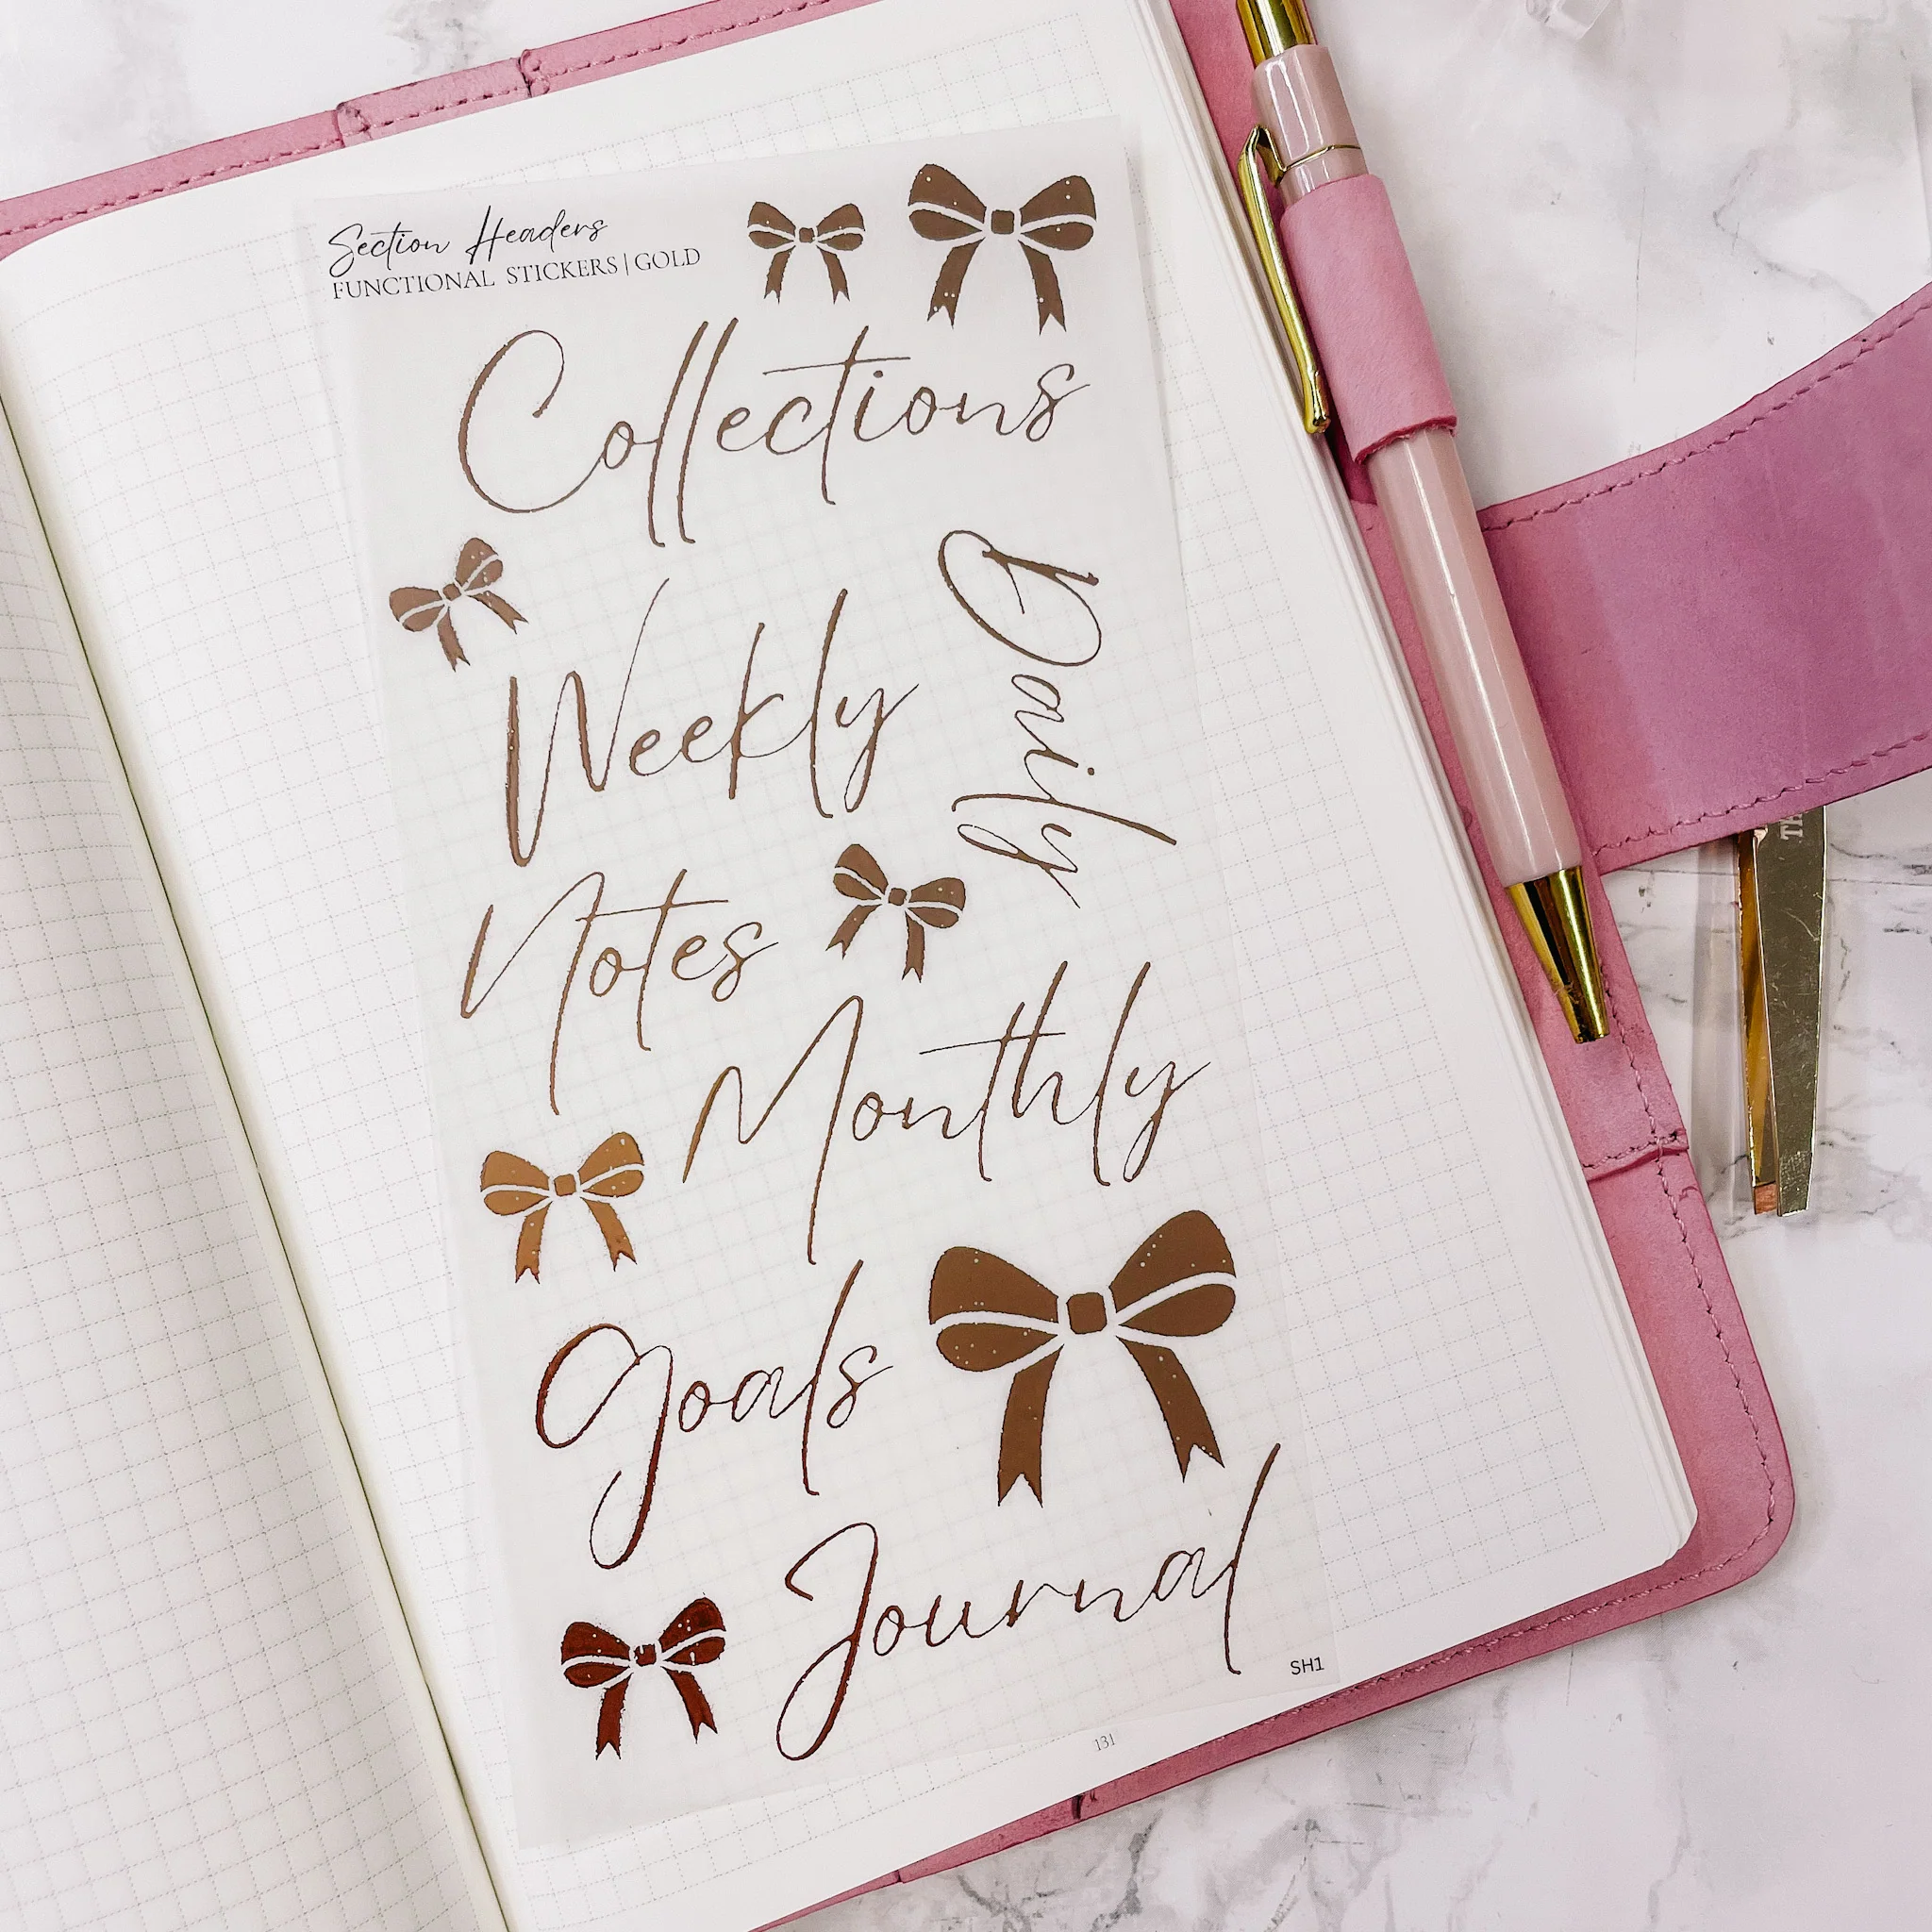 Section Headers
FUNCTIONAL STICKERS | GOLD
Collections
Weekly
Daily
Notes
Monthly
Goals
Journal
SH1
131